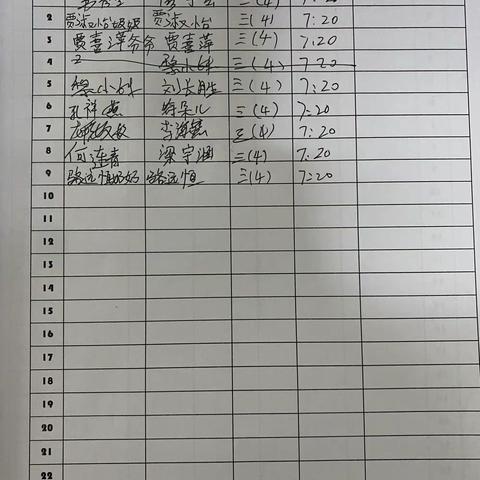 2 贾淑怡姐姐 贾淑怡 三(4) 7:20
3 贾喜萍爷爷 贾喜萍 三(4) 7:20
4 黎小妹 三(4) 7:20
5 黎小妹 刘长胜 三(4) 7:20
6 孔祥燕 三(4) 7:20
7 三(4) 7:20
8 何连青 梁宇涵 三(4) 7:20
9 骆远恒奶奶 骆远恒 三(4) 7:20
10
11
12
13
14
15
16
17
18
19
20
21
22